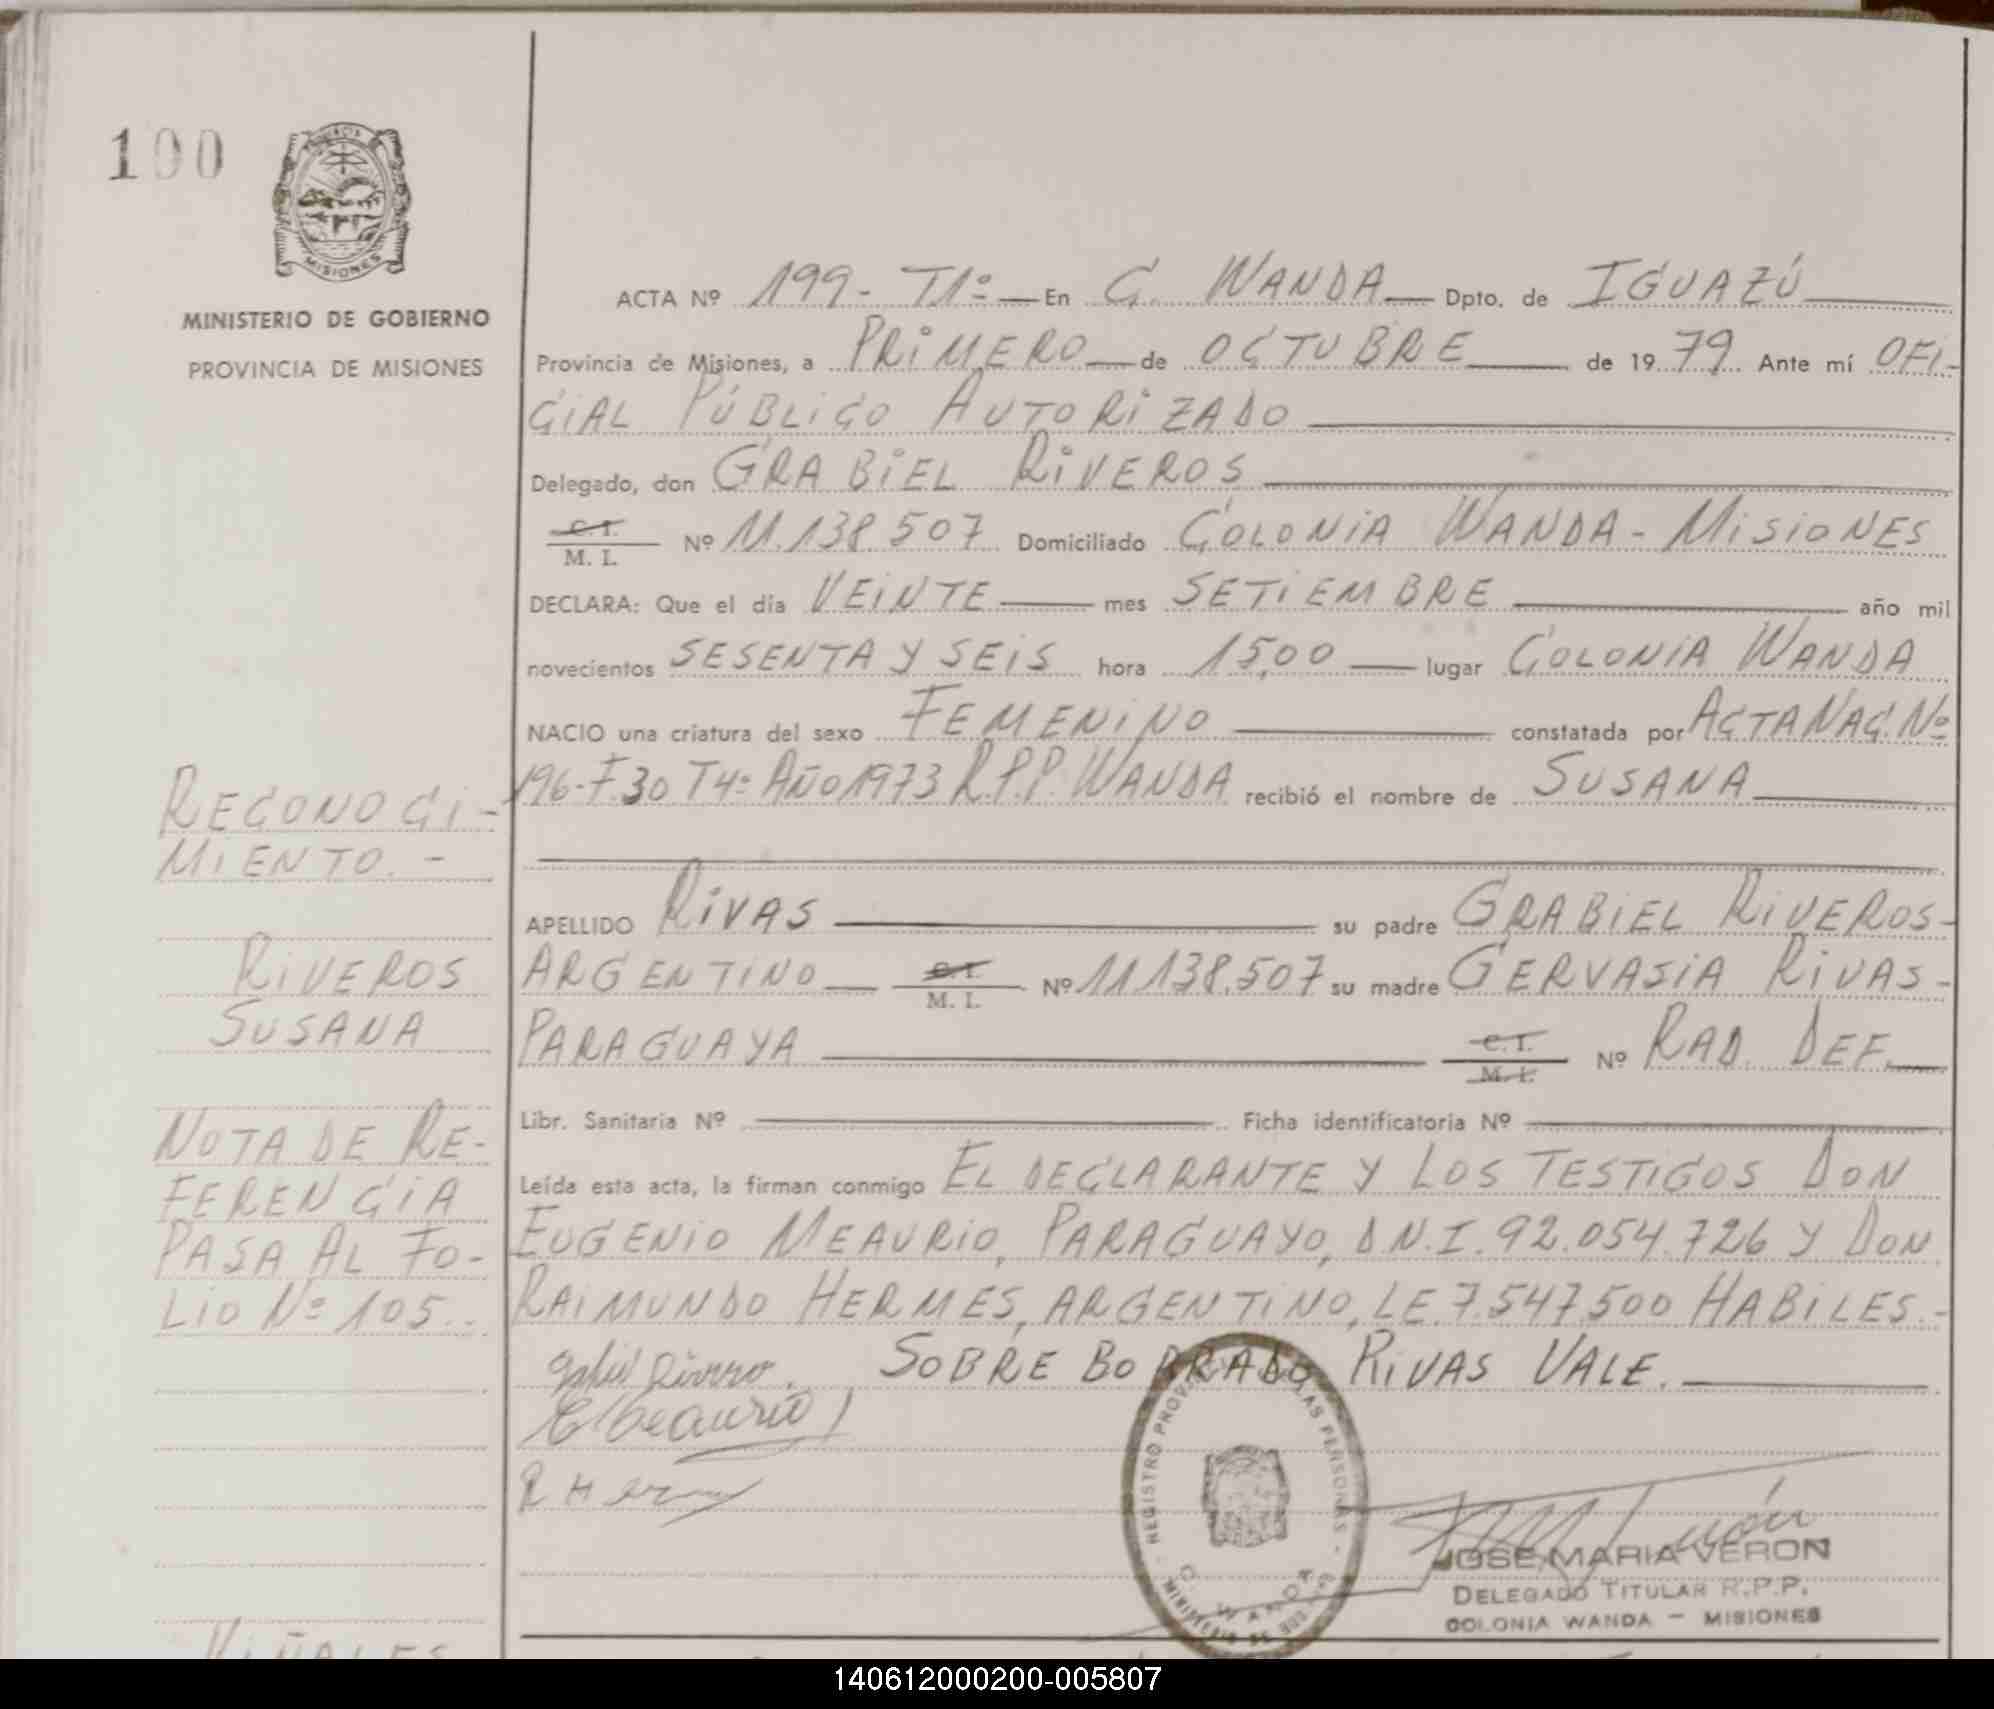 100
PROVINCIA
MISIONES
MINISTERIO DE GOBIERNO
PROVINCIA DE MISIONES
ACTA Nº 199- T1º — En C. WANDA — Dpto. de IGUAZÚ
Provincia de Misiones, a PRIMERO — de OCTUBRE — de 1979 Ante mí OFI-
CIAL PÚBLICO AUTORIZADO
Delegado, don GRABIEL RIVEROS
C.I.
M. I. Nº 11.138.507 Domiciliado COLONIA WANDA - MISIONES
DECLARA: Que el día VEINTE — mes SETIEMBRE — año mil
novecientos SESENTA Y SEIS hora 15,00 — lugar COLONIA WANDA
NACIO una criatura del sexo FEMENINO — constatada por ACTA NAC. Nº
196-F.30 T4º AÑO 1973 R.P.P. WANDA recibió el nombre de SUSANA
APELLIDO RIVAS — su padre GRABIEL RIVEROS-
ARGENTINO — C.I. M. I. Nº 11.138.507 su madre GERVASIA RIVAS-
PARAGUAYA — C.I. M. I. Nº RAD. DEF.
Libr. Sanitaria Nº — Ficha identificatoria Nº —
Leída esta acta, la firman conmigo EL DECLARANTE Y LOS TESTIGOS DON
EUGENIO MEAURIO, PARAGUAYO, D.N.I. 92.054.726 Y DON
RAIMUNDO HERMES, ARGENTINO, LE 7.547.500 HABILES.-
SOBRE BORRADO RIVAS VALE.
RECONOCI-
MIENTO.-
RIVEROS
SUSANA
NOTA DE RE-
FERENCIA
PASA AL FO-
LIO Nº 105..
EMeaurio
R Her
REGISTRO PROV. LAS PERSONAS
C. WANDA
JOSE MARIA VERON
DELEGADO TITULAR R.P.P.
COLONIA WANDA - MISIONES
140612000200-005807